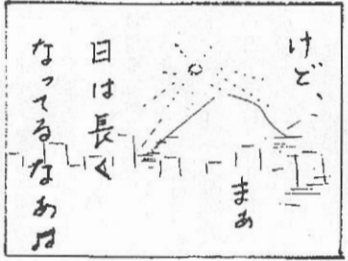 けど、
まぁ
日は長く
なってるなあ♬